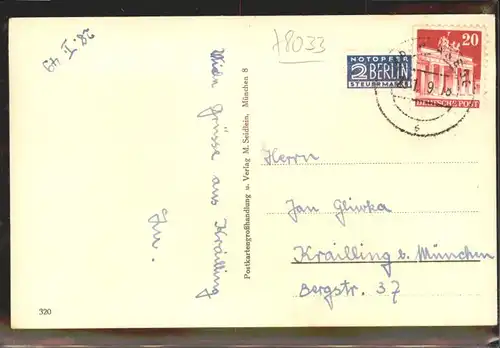 28. I. 49
78033
NOTOPFER
2 BERLIN
STEUERMARKE
20
DEUTSCHE POST
Viele Grüsse aus Krailling
Postkartengroßhandlung u. Verlag M. Seidlein, München 8
Herrn
Jan Gliwka
Krailling b. München
Bergstr. 37
320